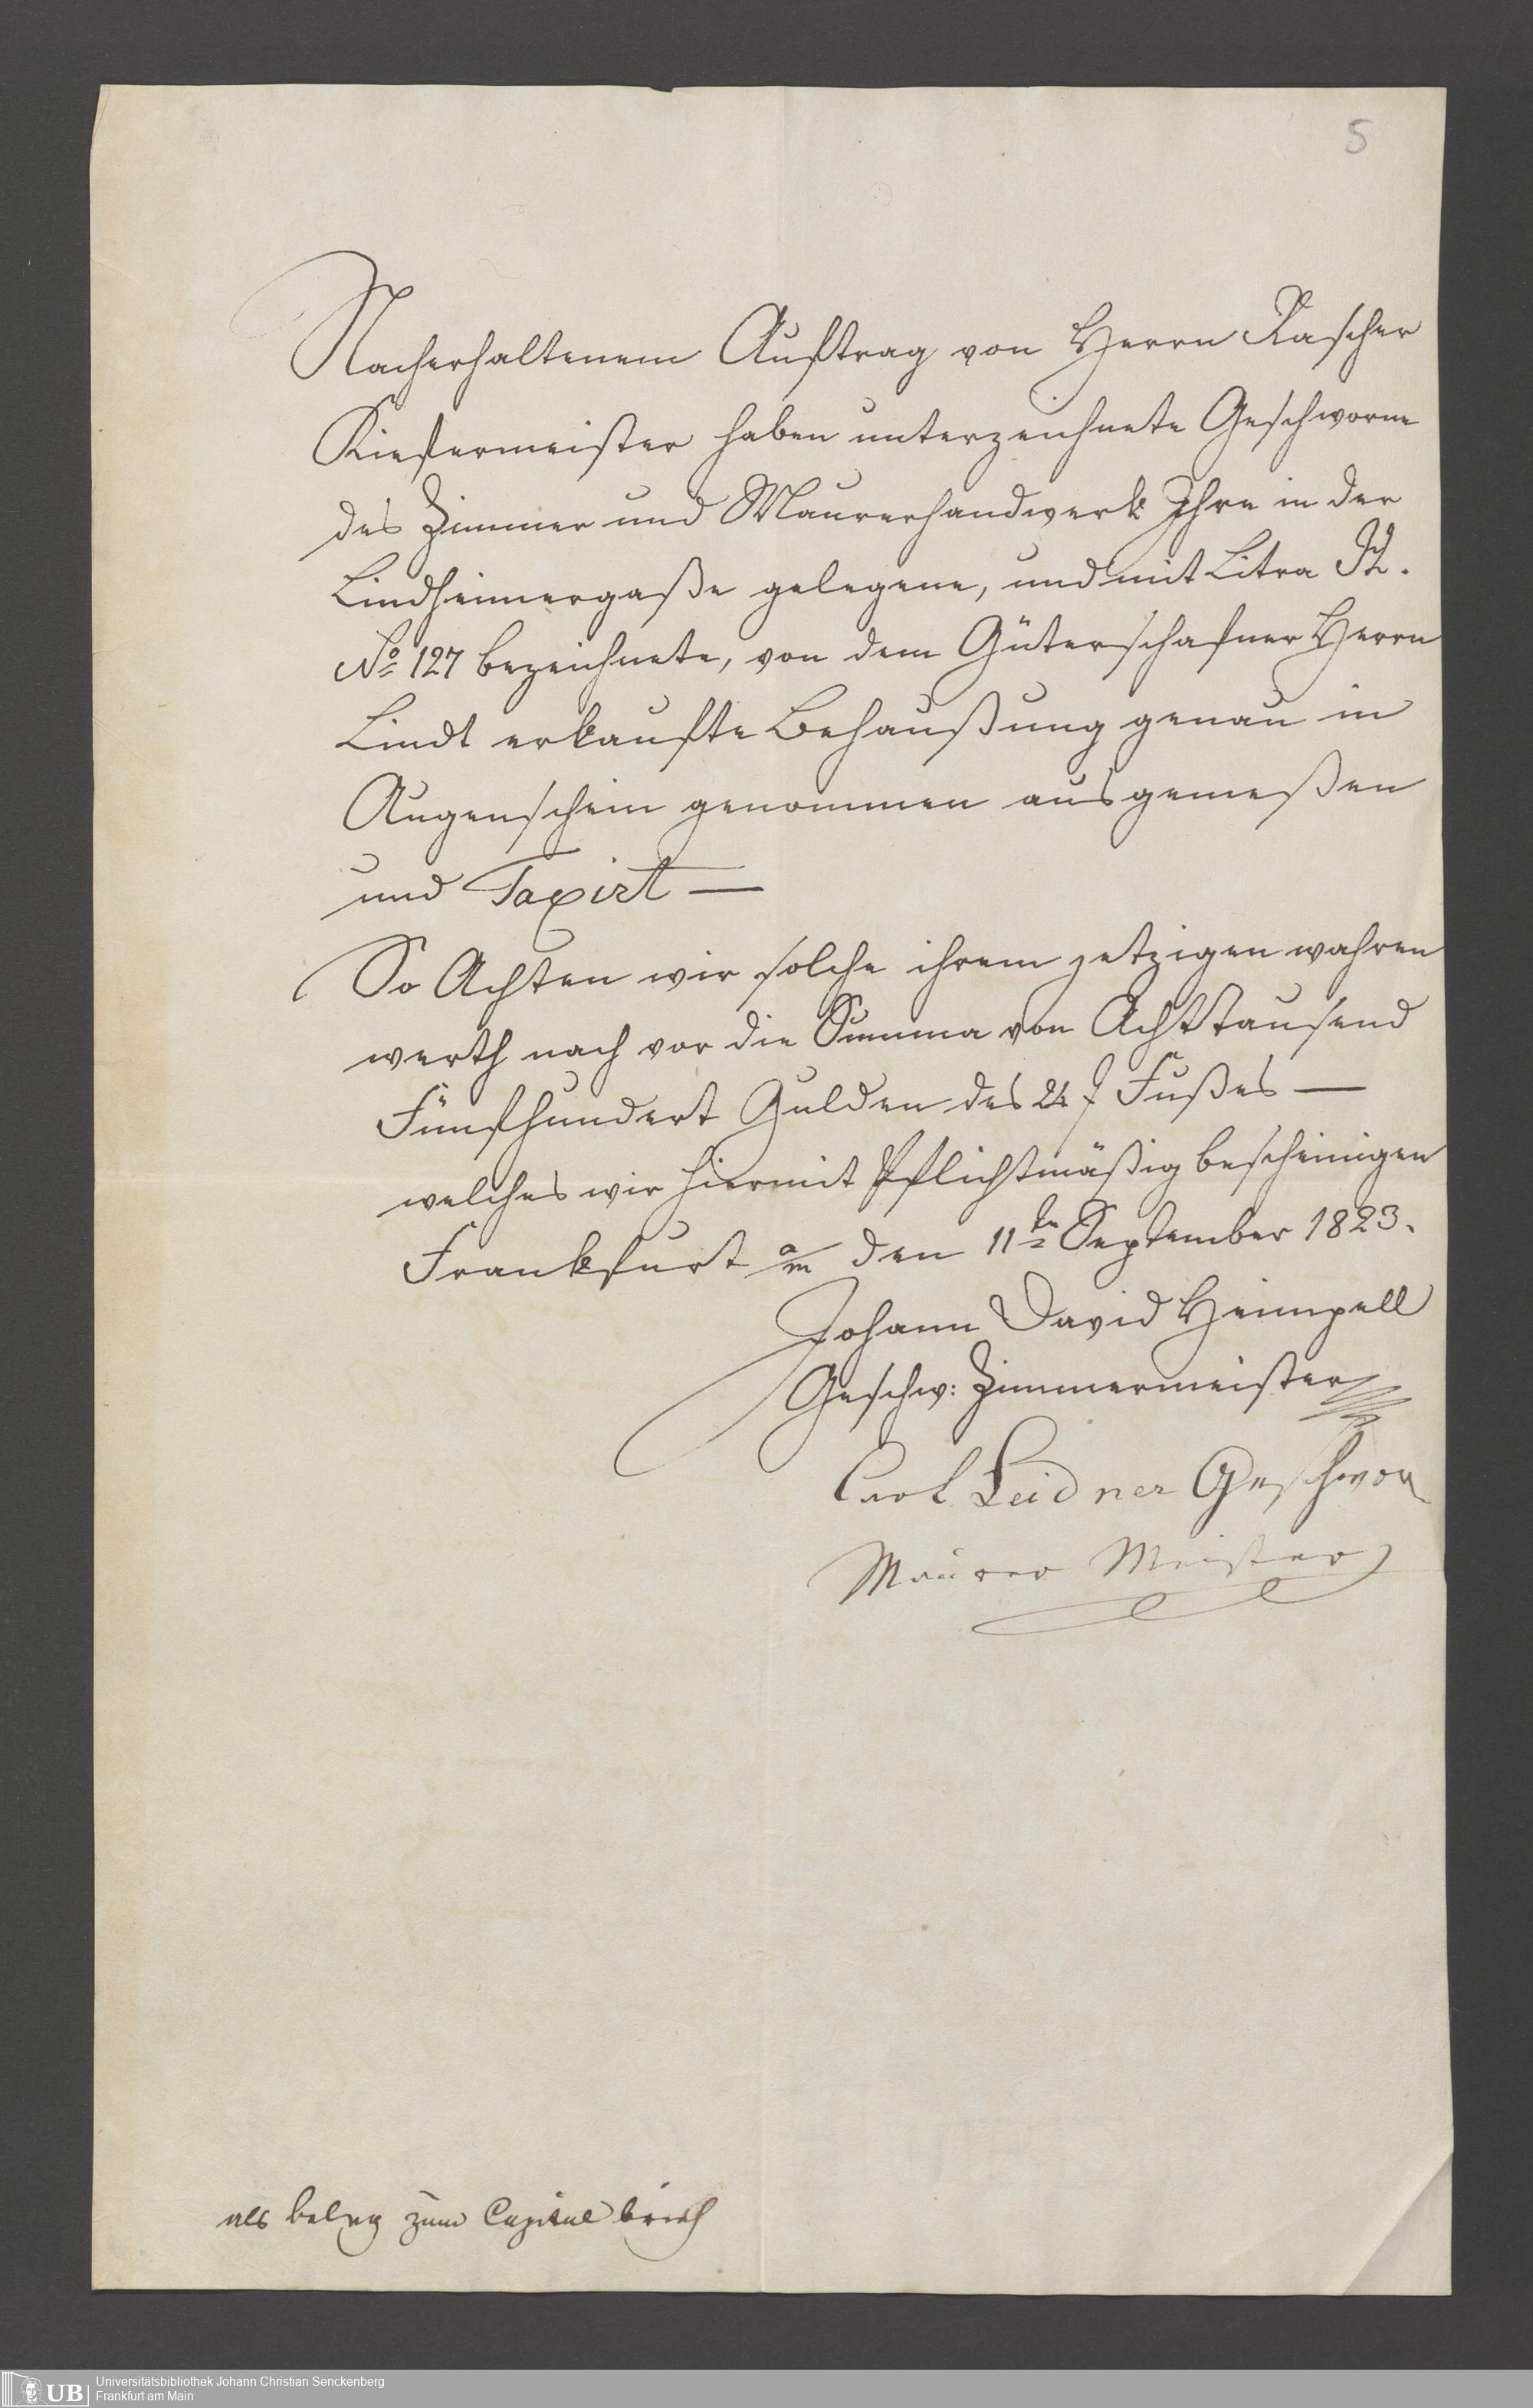 5
Nacherhaltenem Auftrag von Herrn Rascher
Kiefermeister haben unterzeichnete Geschworne
des Zimmer und Maurerhandwerk Ihre in der
Lindheimergaße gelegene, und mit Litra
No 127 bezeichnete, von dem Güterschafner Herrn
Lindt erkaufte Behaußung genau in
Augenschein genommen ausgemeßen
und Taxirt —
So Achten wir solche ihrem jetzigen wahren
werth nach vor die Summa von Achttausend
Fünfhundert Gulden des 24 f Fußes —
welches wir hiermit Pflichtmäßig bescheinigen
Frankfurt a/m den 11ten September 1823.
Johann David Heimpell
Geschw: Zimmermeister
Carl Leidner Geschwor
Maurer Meister
als beleg zum Capital brief
UB
Universitätsbibliothek Johann Christian Senckenberg
Frankfurt am Main